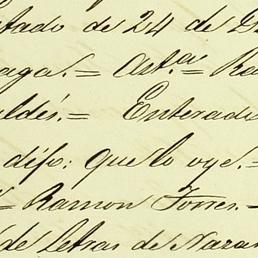 tado de 24 de
aga.= Ast.
ldés.= Enterad
dijo: que lo oye.=
= Ramon Torres.=
de letras de Nara